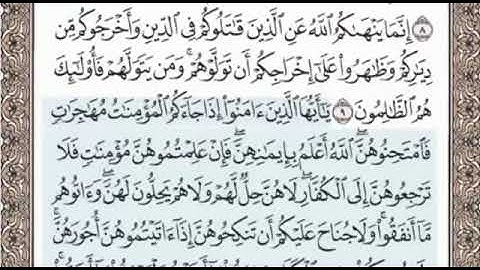 ٨ إِنَّمَا يَنْهَىٰكُمُ ٱللَّهُ عَنِ ٱلَّذِينَ قَٰتَلُوكُمْ فِى ٱلدِّينِ وَأَخْرَجُوكُم مِّن
دِيَٰرِكُمْ وَظَٰهَرُوا۟ عَلَىٰٓ إِخْرَاجِكُمْ أَن تَوَلَّوْهُمْ ۚ وَمَن يَتَوَلَّهُمْ فَأُو۟لَٰٓئِكَ
هُمُ ٱلظَّٰلِمُونَ ٩ يَٰٓأَيُّهَا ٱلَّذِينَ ءَامَنُوٓا۟ إِذَا جَآءَكُمُ ٱلْمُؤْمِنَٰتُ مُهَٰجِرَٰتٍ
فَٱمْتَحِنُوهُنَّ ۖ ٱللَّهُ أَعْلَمُ بِإِيمَٰنِهِنَّ ۖ فَإِنْ عَلِمْتُمُوهُنَّ مُؤْمِنَٰتٍ فَلَا
تَرْجِعُوهُنَّ إِلَى ٱلْكُفَّارِ ۖ لَا هُنَّ حِلٌّ لَّهُمْ وَلَا هُمْ يَحِلُّونَ لَهُنَّ ۖ وَءَاتُوهُم
مَّآ أَنفَقُوا۟ ۚ وَلَا جُنَاحَ عَلَيْكُمْ أَن تَنكِحُوهُنَّ إِذَآ ءَاتَيْتُمُوهُنَّ أُجُورَهُنَّ ۚ